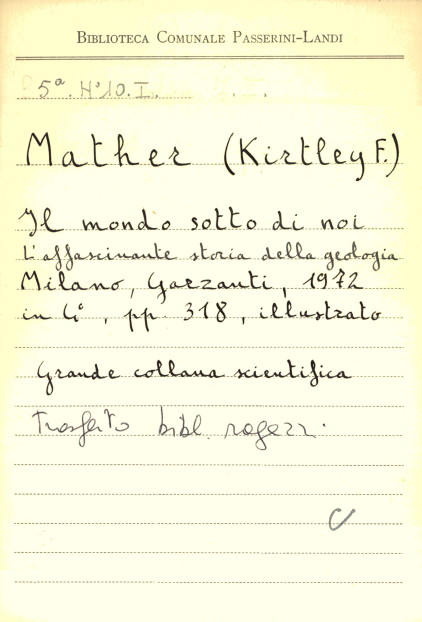 BIBLIOTECA COMUNALE PASSERINI-LANDI
5ª. Hº10. I.
Mather (Kirtley F.)
Il mondo sotto di noi
L'affascinante storia della geologia
Milano, Garzanti, 1972
in 4º, pp. 318, illustrato
Grande collana scientifica
Trasferito bibl. ragazzi.